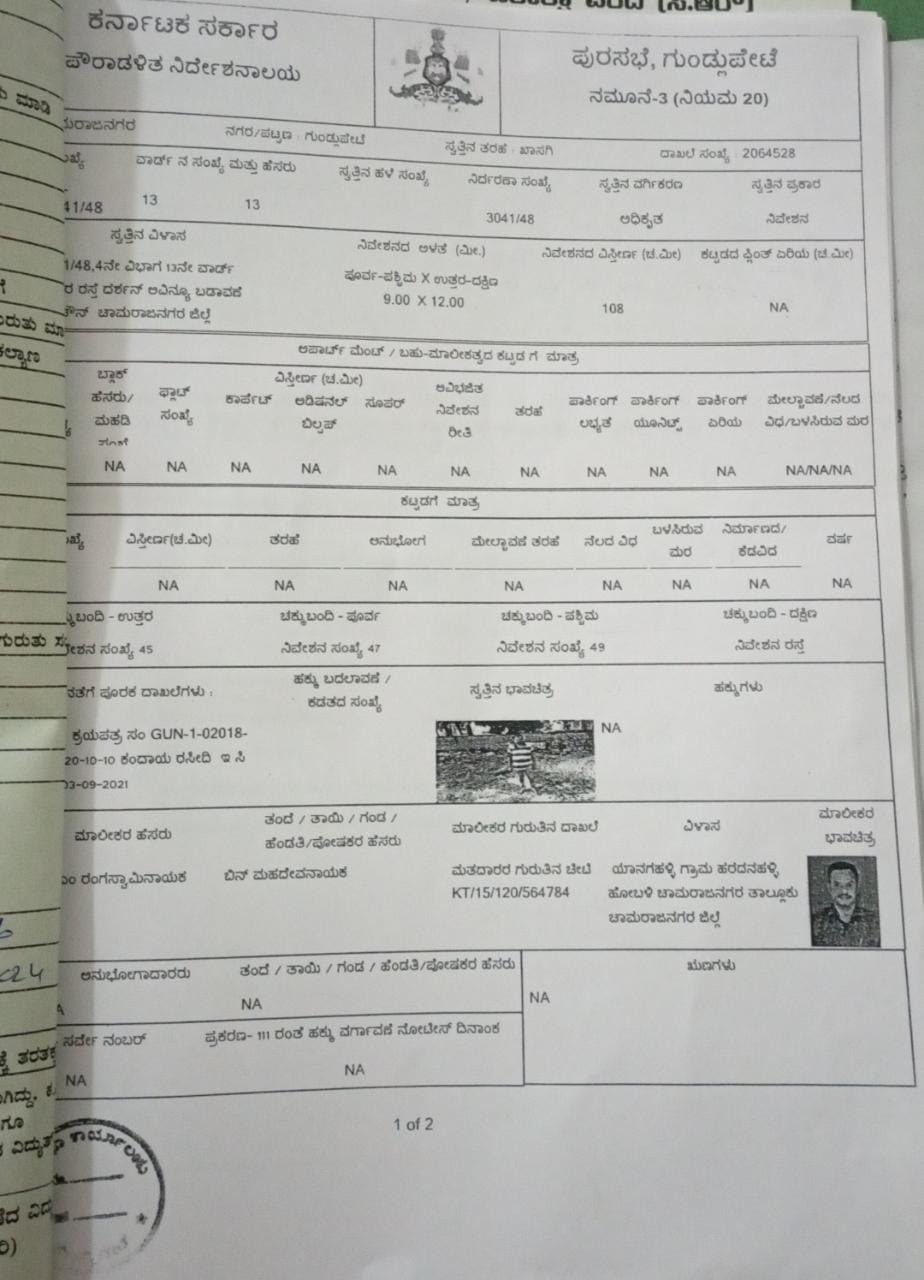 ಕರ್ನಾಟಕ ಸರ್ಕಾರ
ಪೌರಾಡಳಿತ ನಿರ್ದೇಶನಾಲಯ
ಪುರಸಭೆ, ಗುಂಡ್ಲುಪೇಟೆ
ನಮೂನೆ-3 (ನಿಯಮ 20)
ಮರಾಜನಗರ ನಗರ/ಪಟ್ಟಣ : ಗುಂಡ್ಲುಪೇಟೆ ಸ್ವತ್ತಿನ ತರಹೆ : ಖಾಸಗಿ ದಾಖಲೆ ಸಂಖ್ಯೆ : 2064528
ವಾರ್ಡ್ ನ ಸಂಖ್ಯೆ ಮತ್ತು ಹೆಸರು ಸ್ವತ್ತಿನ ಹಳೆ ಸಂಖ್ಯೆ ನಿರ್ದರಣಾ ಸಂಖ್ಯೆ ಸ್ವತ್ತಿನ ವರ್ಗಿಕರಣ ಸ್ವತ್ತಿನ ಪ್ರಕಾರ
41/48 13 13 3041/48 ಅಧಿಕೃತ ನಿವೇಶನ
ಸ್ವತ್ತಿನ ವಿಳಾಸ ನಿವೇಶನದ ಅಳತೆ (ಮೀ.) ನಿವೇಶನದ ವಿಸ್ತೀರ್ಣ (ಚ.ಮೀ) ಕಟ್ಟಡದ ಪ್ಲಿಂತ್ ಏರಿಯ (ಚ.ಮೀ)
1/48,4ನೇ ವಿಭಾಗ 13ನೇ ವಾರ್ಡ್ ಪೂರ್ವ-ಪಶ್ಚಿಮ X ಉತ್ತರ-ದಕ್ಷಿಣ
ರ ರಸ್ತೆ ದರ್ಶನ್ ಅವಿನ್ಯೂ ಬಡಾವಣೆ 9.00 X 12.00 108 NA
ಚಾಮರಾಜನಗರ ಜಿಲ್ಲೆ
ಅಪಾರ್ಟ್ ಮೆಂಟ್ / ಬಹು-ಮಾಲೀಕತ್ವದ ಕಟ್ಟಡ ಗೆ ಮಾತ್ರ
ಬ್ಲಾಕ್ ಹೆಸರು/ ಮಹಡಿ
ಫ್ಲಾಟ್ ಸಂಖ್ಯೆ
ವಿಸ್ತೀರ್ಣ (ಚ.ಮೀ)
ಕಾರ್ಪೆಟ್ ಅಡಿಷನಲ್ ಬಿಲ್ಟಪ್ ಸೂಪರ್
ಅವಿಭಜಿತ ನಿವೇಶನ ರೀತಿ
ತರಹೆ
ಪಾರ್ಕಿಂಗ್ ಲಭ್ಯತೆ
ಪಾರ್ಕಿಂಗ್ ಯೂನಿಟ್ಸ್
ಪಾರ್ಕಿಂಗ್ ಏರಿಯ
ಮೇಲ್ಛಾವಣೆ/ನೆಲದ ವಿಧ/ಬಳಸಿರುವ ಮರ
NA NA NA NA NA NA NA NA NA NA NA/NA/NA
ಕಟ್ಟಡಗೆ ಮಾತ್ರ
ವಿಸ್ತೀರ್ಣ(ಚ.ಮೀ) ತರಹೆ ಅನುಭೋಗ ಮೇಲ್ಛಾವಣೆ ತರಹೆ ನೆಲದ ವಿಧ ಬಳಸಿರುವ ಮರ ನಿರ್ಮಾಣದ/ ಕೆಡವಿದ ವರ್ಷ
NA NA NA NA NA NA NA NA
ಬಂದಿ - ಉತ್ತರ ಚಕ್ಕುಬಂದಿ - ಪೂರ್ವ ಚಕ್ಕುಬಂದಿ - ಪಶ್ಚಿಮ ಚಕ್ಕುಬಂದಿ - ದಕ್ಷಿಣ
ವೇಶನ ಸಂಖ್ಯೆ 45 ನಿವೇಶನ ಸಂಖ್ಯೆ 47 ನಿವೇಶನ ಸಂಖ್ಯೆ 49 ನಿವೇಶನ ರಸ್ತೆ
ನತೆಗೆ ಪೂರಕ ದಾಖಲೆಗಳು : ಹಕ್ಕು ಬದಲಾವಣೆ / ಕಡತದ ಸಂಖ್ಯೆ ಸ್ವತ್ತಿನ ಭಾವಚಿತ್ರ ಹಕ್ಕುಗಳು
ಕ್ರಯಪತ್ರ ಸಂ GUN-1-02018- NA
20-10-10 ಕಂದಾಯ ರಸೀದಿ ಇ ಸಿ
03-09-2021
ಮಾಲೀಕರ ಹೆಸರು ತಂದೆ / ತಾಯಿ / ಗಂಡ / ಹೆಂಡತಿ/ಪೋಷಕರ ಹೆಸರು ಮಾಲೀಕರ ಗುರುತಿನ ದಾಖಲೆ ವಿಳಾಸ ಮಾಲೀಕರ ಭಾವಚಿತ್ರ
ರಂಗಸ್ವಾಮಿನಾಯಕ ಬಿನ್ ಮಹದೇವನಾಯಕ ಮತದಾರರ ಗುರುತಿನ ಚೀಟಿ ಯಾನಗಹಳ್ಳಿ ಗ್ರಾಮ ಹರದನಹಳ್ಳಿ
KT/15/120/564784 ಹೋಬಳಿ ಚಾಮರಾಜನಗರ ತಾಲ್ಲೂಕು
ಚಾಮರಾಜನಗರ ಜಿಲ್ಲೆ
ಅನುಭೋಗಾದಾರರು ತಂದೆ / ತಾಯಿ / ಗಂಡ / ಹೆಂಡತಿ/ಪೋಷಕರ ಹೆಸರು ಋಣಗಳು
NA NA
ಸರ್ವೇ ನಂಬರ್ ಪ್ರಕರಣ- 111 ರಂತೆ ಹಕ್ಕು ವರ್ಗಾವಣೆ ನೋಟೀಸ್ ದಿನಾಂಕ
NA NA
1 of 2
ಕಾರ್ಯಾಲಯ